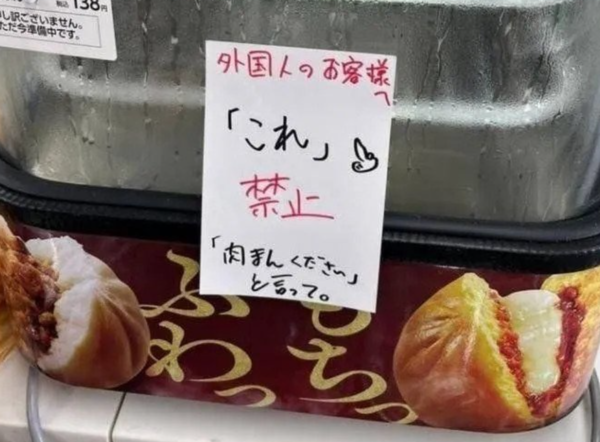 138円
し訳ございません。
ただ今準備中です。
外国人のお客様
へ
「これ」
禁止
「肉まんください」
と言って。
ふわっ
もちっ